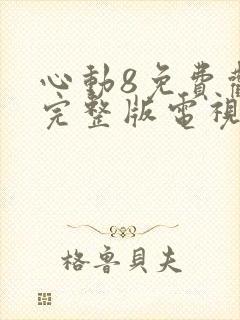 心動8免費觀
完整版電視
格魯貝夫